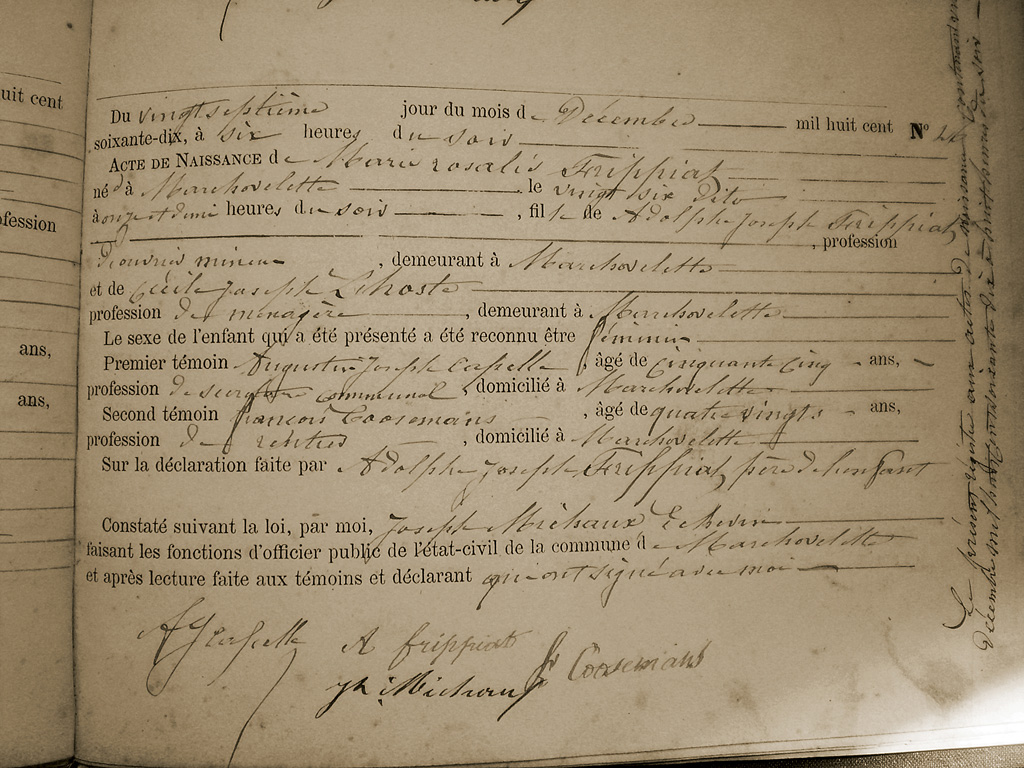 uit cent
ofession
ans,
ans,
Du vingt septième jour du mois de Décembre mil huit cent Nº
soixante-dix, à six heures du soir
ACTE DE NAISSANCE de Marie rosalie Frippiat
née à Marchovelette le vingt six dito
à onze et demi heures du soir, fille de Adolphe Joseph Frippiat
, profession
d'ouvrier mineur, demeurant à Marchovelette
et de Cécile Joseph Lhoste
profession de ménagère, demeurant à Marchovelette
Le sexe de l'enfant qui a été présenté a été reconnu être féminin
Premier témoin Augustin Joseph Capelle, âgé de cinquante cinq ans,
profession de communal, domicilié à Marchovelette
Second témoin françois Coosemans, âgé de quatre vingts ans,
profession de rentier, domicilié à Marchovelette
Sur la déclaration faite par Adolphe Joseph Frippiat père de l'enfant
Constaté suivant la loi, par moi, Joseph Michaux Echevin
faisant les fonctions d'officier public de l'état-civil de la commune de Marchovelette
et après lecture faite aux témoins et déclarant qui ont signé avec moi
AJ Capelle A frippiat fr Coosemans
Jh Michaux
Le présent registre aux actes de naissance
Décembre mil huit cent soixante dix à huit heures du soir